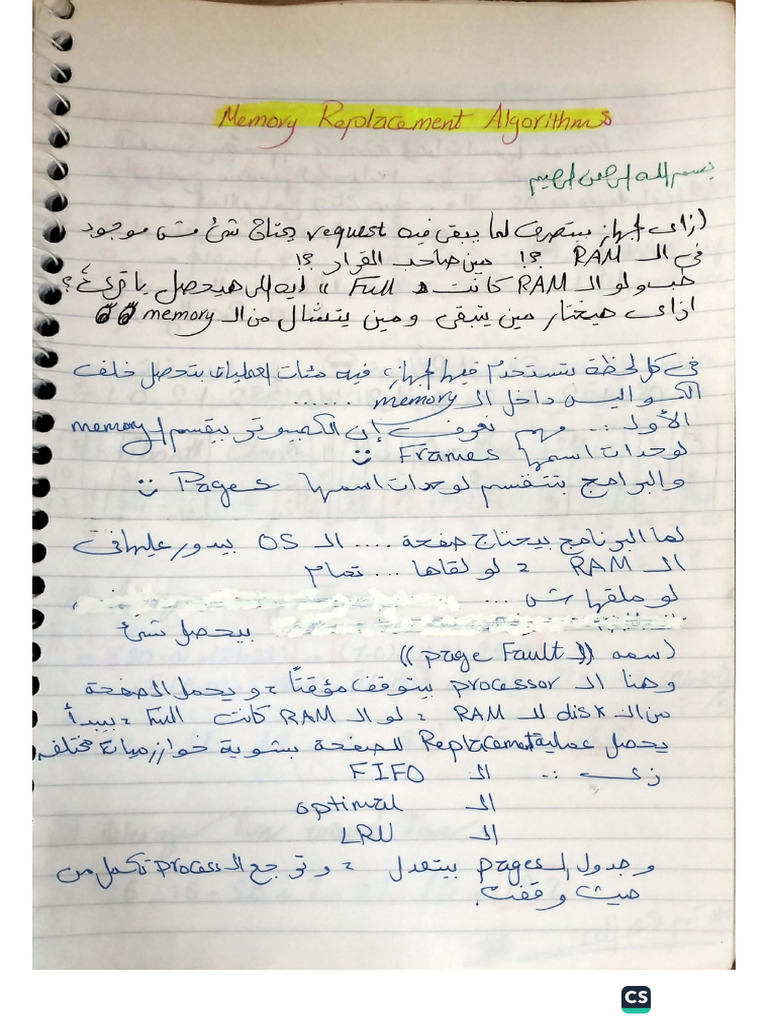 Memory Replacement Algorithms
بسم الله الرحمن الرحيم
إزاى الجهاز بيتصرف لما يبقى فيه request يحتاج شئ مش موجود
فى الـ RAM ؟! مين صاحب القرار ؟!
طب ولو الـ RAM كانت Full » ايه اللى هيحصل يا ترى ؟
ازاى هيختار مين يتبقى ومين يتشال من الـ memory
فى كل لحظة بتستخدم فيها الجهاز، فيه مئات العمليات بتحصل خلف
الكواليس داخل الـ memory ......
الأول ... مهم نعرف إن الكمبيوتر بيقسم الـ memory
لوحدات اسمها Frames
والبرامج بتتقسم لوحدات اسمها Pages
لما البرنامج بيحتاج صفحة .... الـ OS بيدور عليها فى
الـ RAM ، لو لقاها ... تمام
لو ملقهاش ...
بيحصل شئ
اسمه ((الـ page Fault))
وهنا الـ processor بيتوقف مؤقتاً ، ويحمل الصفحة
من الـ disk للـ RAM ، لو الـ RAM كانت Full ، بيبدأ
يحصل عملية Replacement للصفحة بشوية خوارزميات مختلفه
زى ..
الـ FIFO
الـ optimal
الـ LRU
وجدول الـ pages بيتعدل ، وترجع الـ process تكمل من
حيث وقفت.
CS